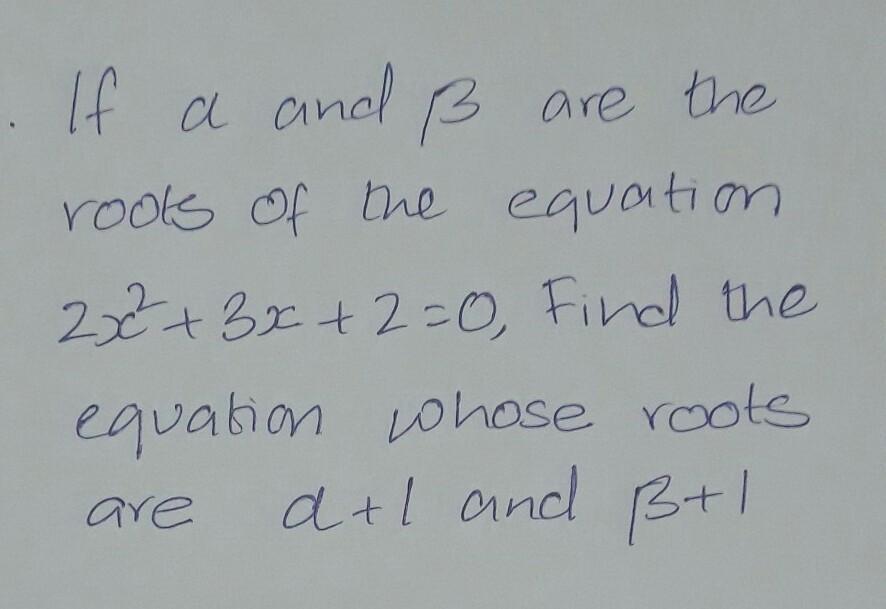 . If α and β are the
roots of the equation
2x² + 3x + 2 = 0, Find the
equation whose roots
are α+1 and β+1